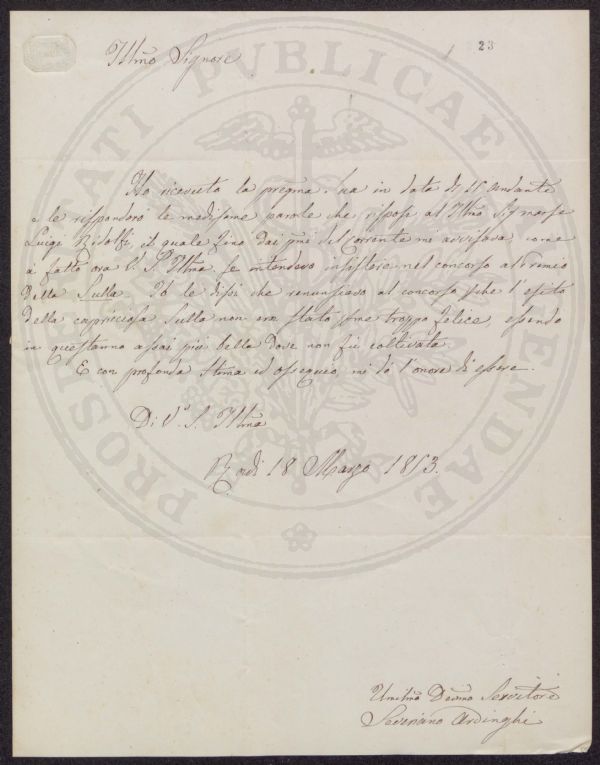 23
Illmo Signore
Ho ricevuto la pregma sua in data de 15 andante
e le risponderò le medesime parole che rispose al Illmo Sig marse
Luigi Ridolfi, il quale fino dai pmi del corrente mi avvisava, come
à fatto ora V. S. Illma se intendevo insistere nel concorso al Premio
Della Sulla. Io le dissi che renunziavo al concorso pche l'esito
della capricciosa Sulla non era stato pme troppo felice, essendo
in questanno assai più bella dove non fù coltivata.
E con profonda stima ed ossequio mi dò l'onore di essere.
Di Va S. Illma
18 Marzo 1853.
Umilmo Devmo Servitore
Severiano Ardinghi
PROSPERITATI PUBLICAE AUGENDAE